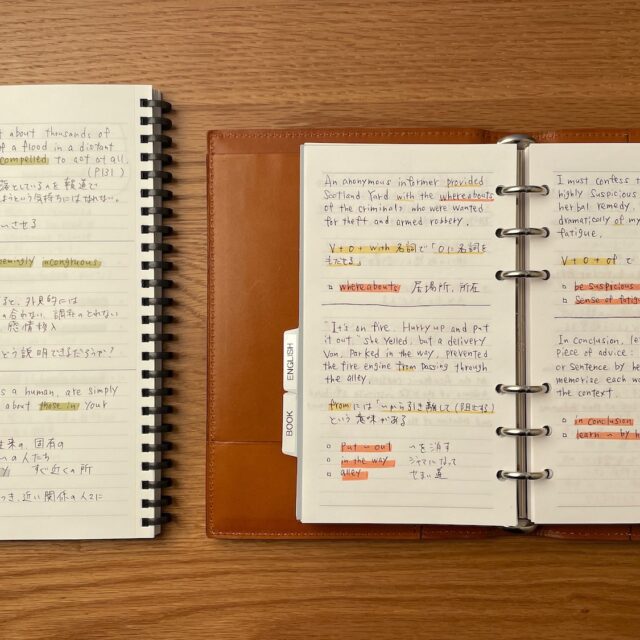 t about thousands of
f a flood in a distant
compelled to act at all.
(P131)
emingly incongruous
s a human, are simply
about those in your
すぐ近くの所
An anonymous informer provided
Scotland Yard with the whereabouts
of the criminals who were wanted
for theft and armed robbery.
V+O+with 名詞で「Oに名詞を
whereabouts 居場所、所在
"It's on fire. Hurry up and put
it out," she yelled, but a delivery
van, parked in the way, prevented
the fire engine from passing through
the alley.
fromには「〜から引き離して(阻止する)
という意味がある
put 〜 out 〜を消す
in the way ジャマになって
alley せまい道
ENGLISH
BOOK
I must confess t
highly suspicious
herbal remedy.
dramatically of my
fatigue.
V+O+of で
be suspicious
sense of fatig
In conclusion, le
piece of advice:
or sentence by he
memorize each w
the context.
in conclusion
learn 〜 by h